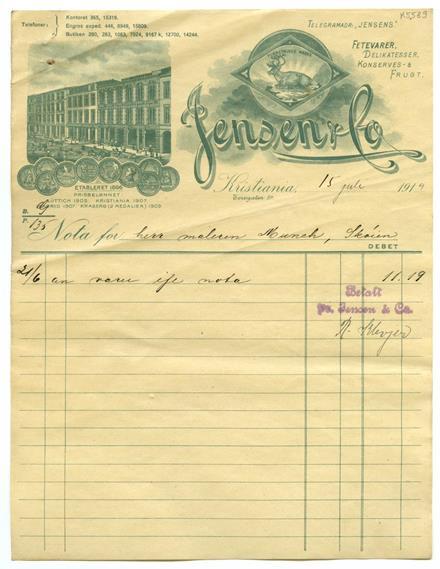 K5589
Telefoner:
Kontoret 365, 15319.
Engros exped. 446, 8949, 15809.
Butiken 280, 283, 1083, 7924, 9167 k, 12700, 14244.
TELEGRAMADR.: „JENSENS“
FETEVARER,
DELIKATESSER,
KONSERVES- &
FRUGT.
Jensen & Co
ETABLERET 1866
PRISBELØNNET:
LÜTTICH 1905. KRISTIANIA 1907.
MADRID 1907. KRAGERØ (2 MEDALJER) 1909
Kristiania, 15 juli 1914
B.
F. 135
Nota for herr maleren Munch, Skøien
DEBET
24/6 an varer ifl nota 11.19
Betalt
pr. Jensen & Co.